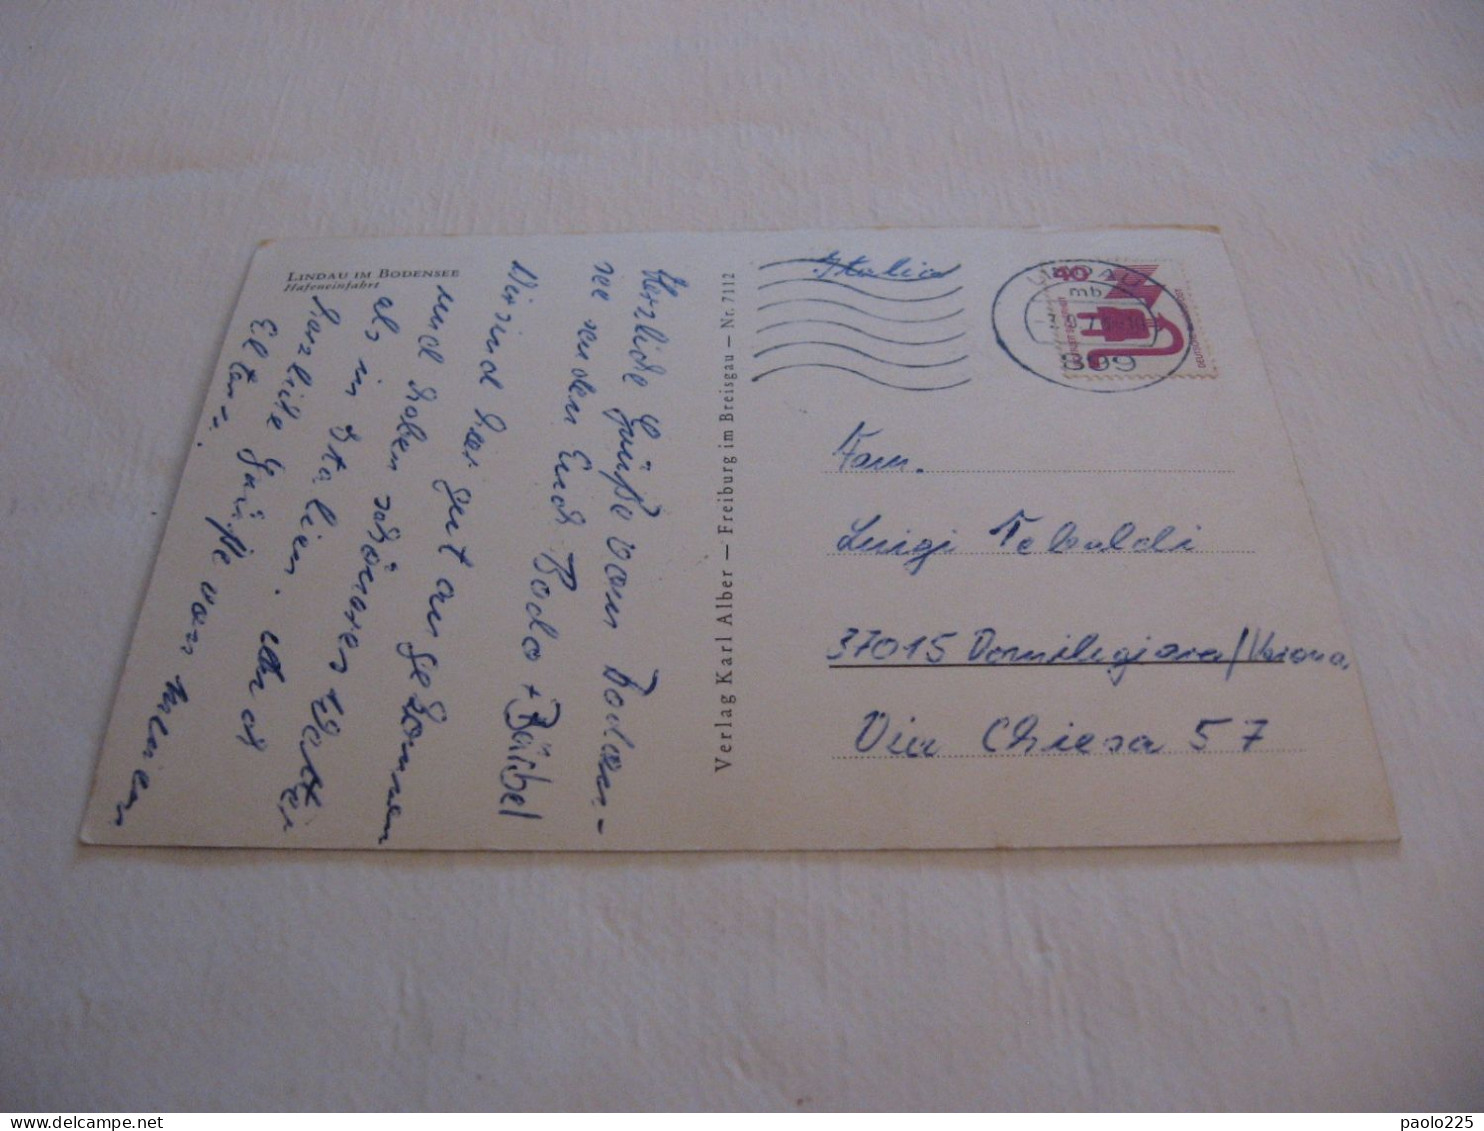 LINDAU IM BODENSEE
Hafeneinfahrt
Herzliche Grüße vom Boden-
see senden Euch Bodo + Bärbel
Wir sind hier gut angekommen
und haben schöneres Wetter
als in Italien. Auch
herzliche Grüße von meinen
Eltern.
Verlag Karl Alber – Freiburg im Breisgau – Nr. 7112
Italia
LINDAU
mb
899
40
Fam.
Luigi Tebaldi
37015 Domilegiara/Verona
Via Chiesa 57
paolo225